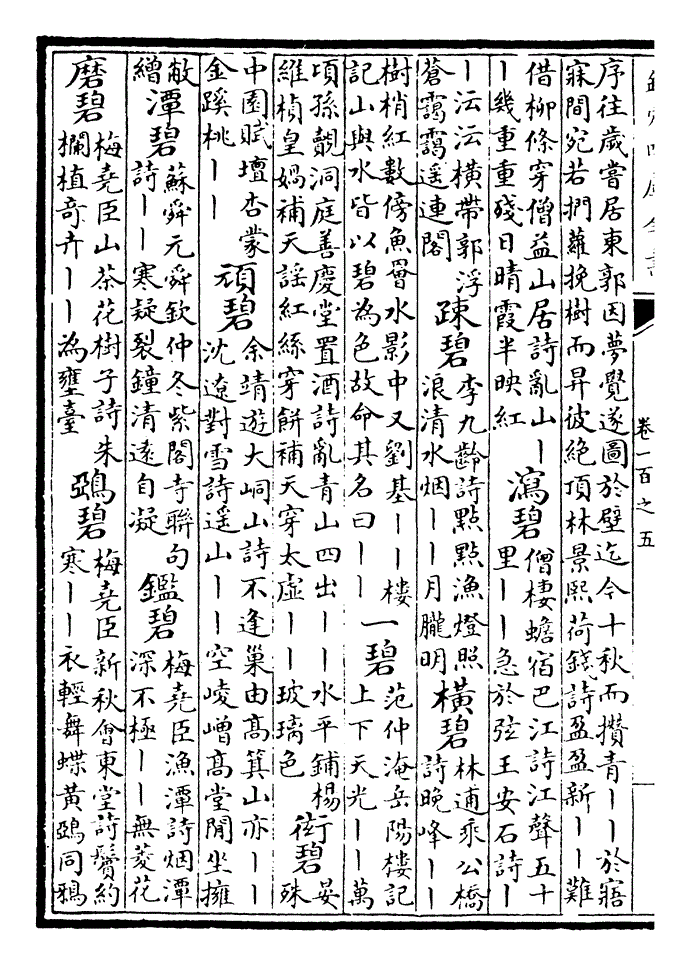 欽定四庫全書
卷一百之五
序往歲嘗居東郭因夢覺遂圖於壁迄今十秋而攢青丨丨於寤
寐間宛若捫蘿挽樹而昇彼絕頂林景熙荷錢詩盈盈新丨丨難
借柳條穿僧益山居詩亂山丨
丨幾重重殘日晴霞半映紅
瀉碧
僧棲蟾宿巴江詩江聲五十
里丨丨急於弦王安石詩丨
丨沄沄橫帶郭浮
蒼靄靄遥連閣
疎碧
李九齡詩點點漁燈照
浪清水烟丨丨月朧明
橫碧
林逋乘公橋
詩晚峰丨丨
樹梢紅數傍魚罾水影中又劉基丨丨樓
記山與水皆以碧為色故命其名曰丨丨
一碧
范仲淹岳陽樓記
上下天光丨丨萬
項孫覿洞庭善慶堂置酒詩亂青山四出丨丨水平鋪楊
維楨皇媧補天謡紅絲穿餅補天穿太虛丨丨玻璃色
衒碧
晏
殊
中園賦壇杏蒙
金蹊桃丨丨
頑碧
余靖遊大峒山詩不逢巢由髙箕山亦丨丨
沈遼對雪詩遥山丨丨空崚嶒髙堂閒坐擁
敝
繒
潭碧
蘇舜元舜欽仲冬紫閣寺聯句
詩丨丨寒凝裂鐘清遠自凝
鑑碧
梅堯臣漁潭詩烟潭
深不極丨丨無菱花
磨碧
梅堯臣山茶花樹子詩朱
欄植奇卉丨丨為甕臺
鵶碧
梅堯臣新秋會東堂詩鬢約
寒丨丨衣輕舞蝶黃鵶同鴉